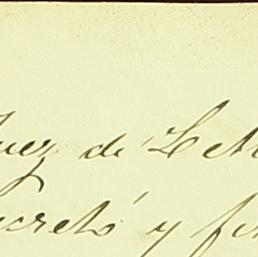 Juez de Letr
ecretó y fir